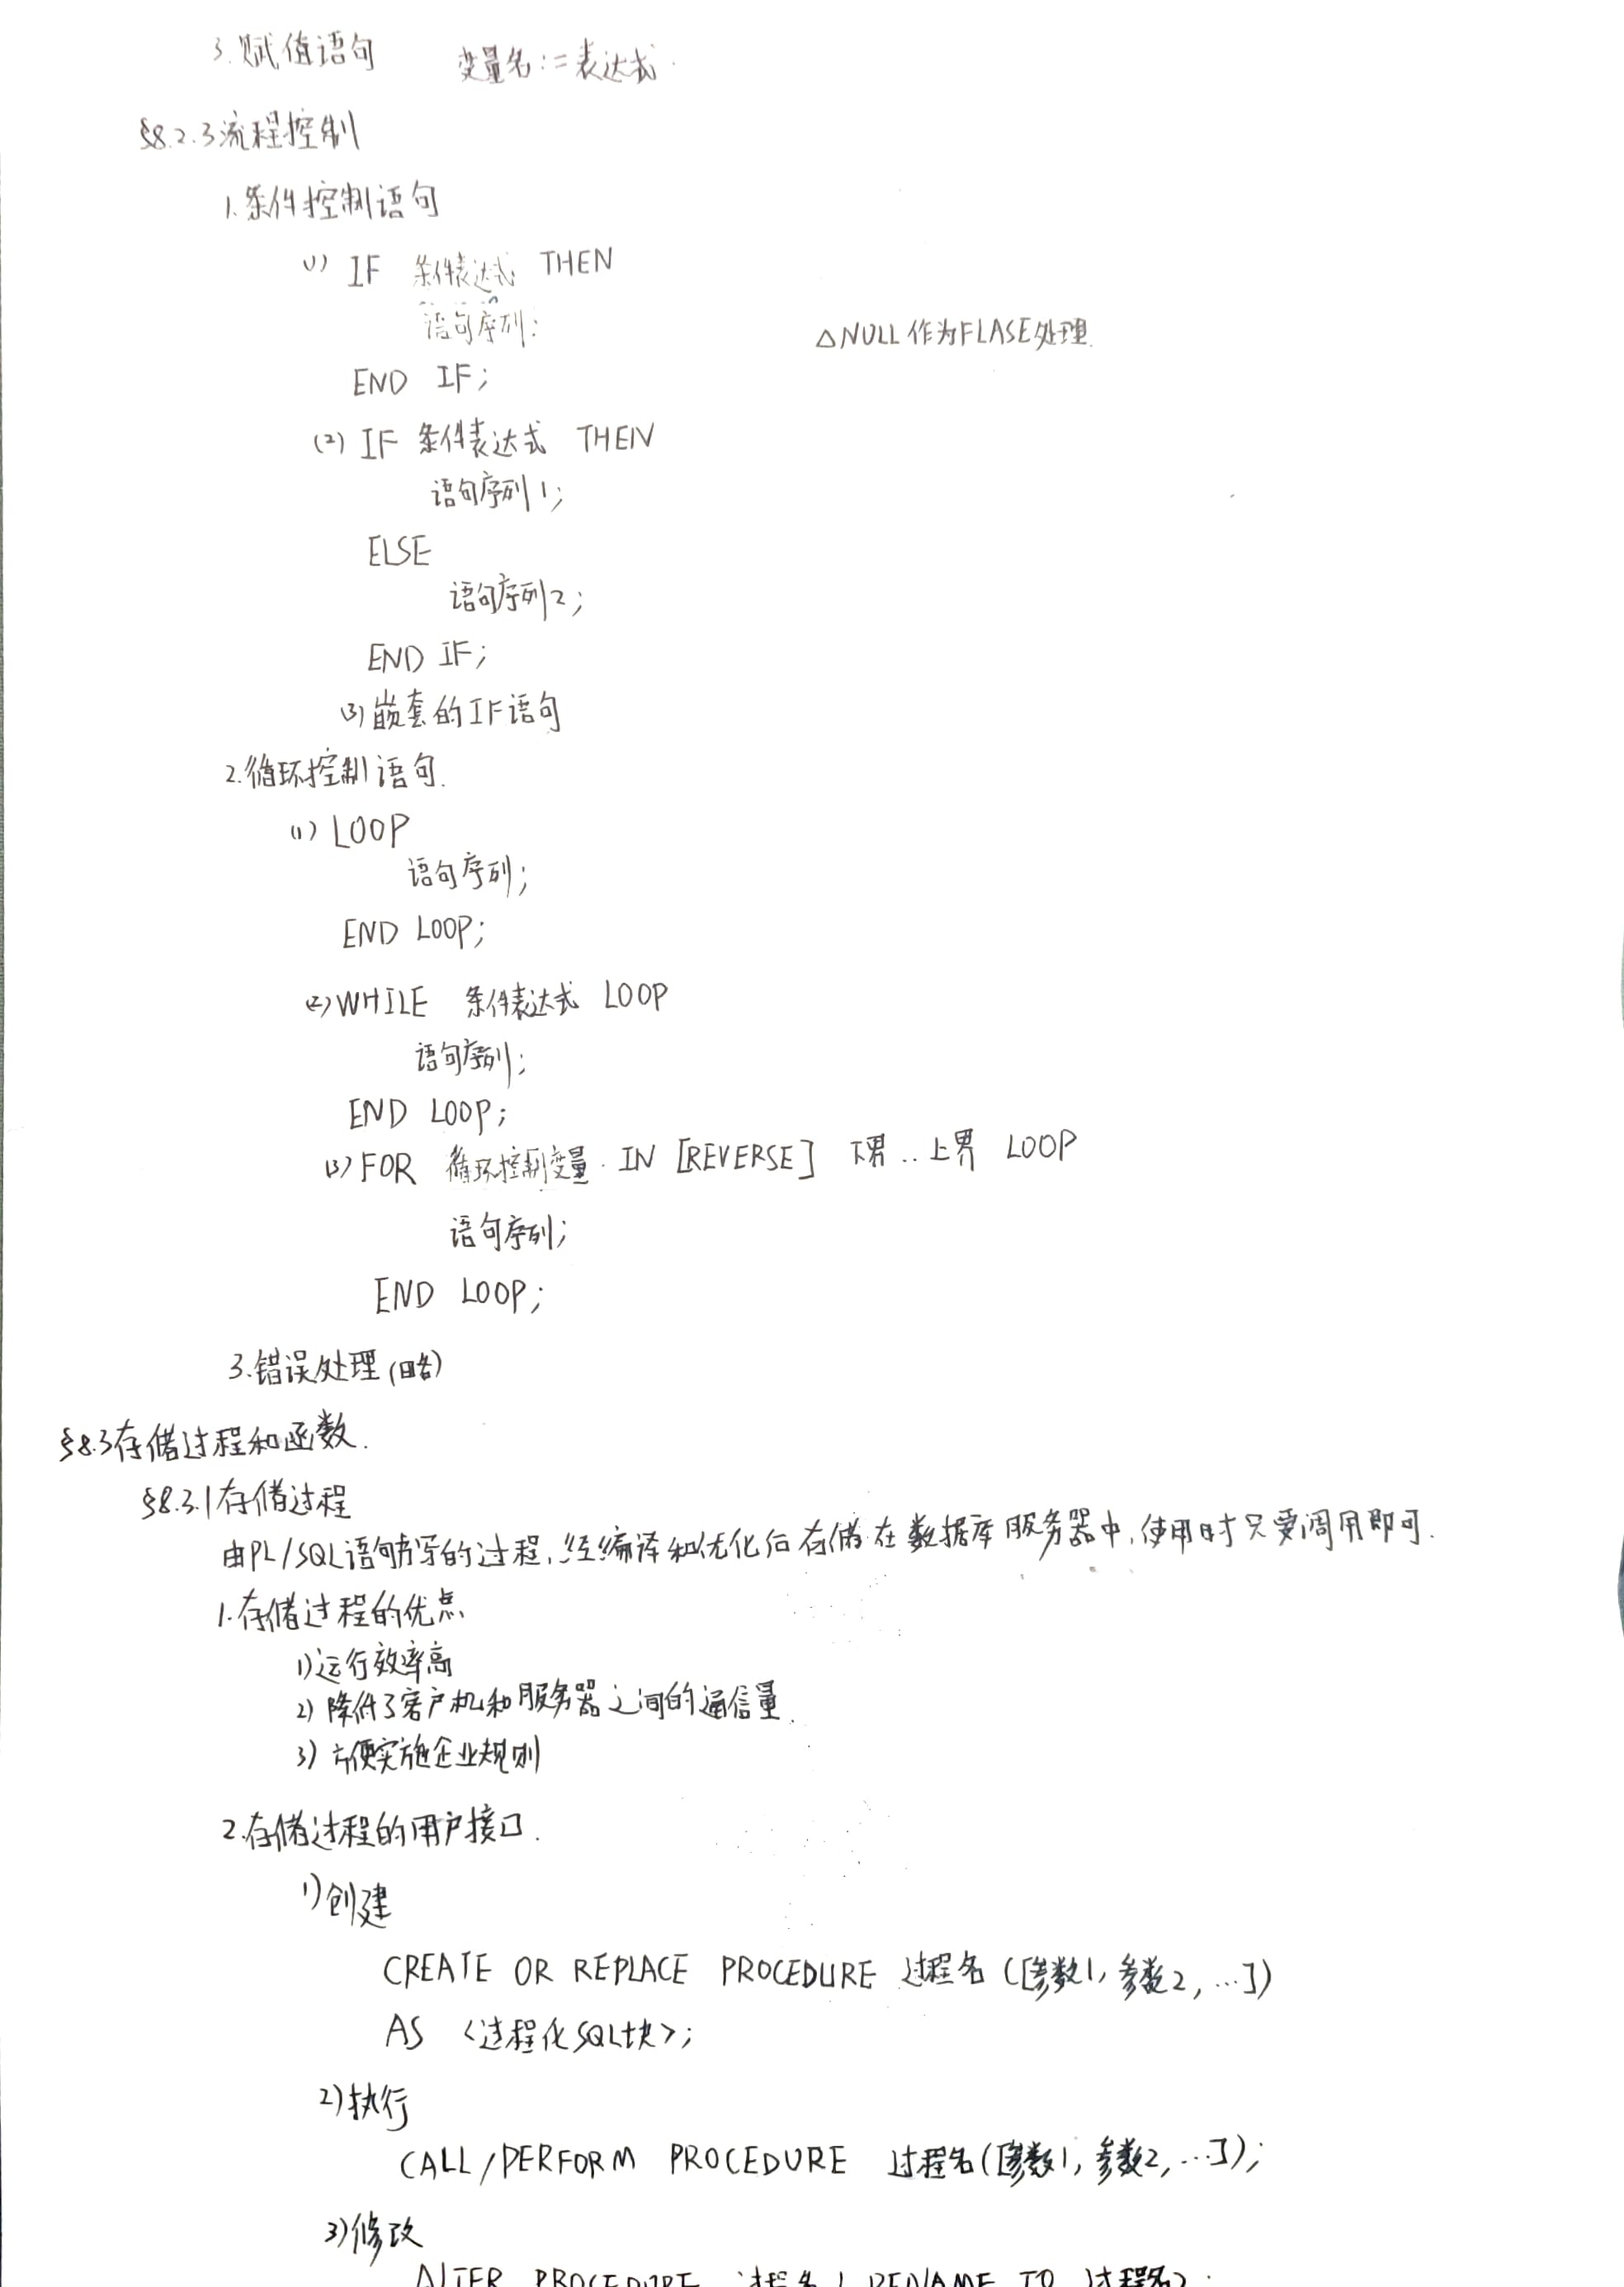 3.赋值语句 变量名:=表达式.
§8.2.3流程控制
1.条件控制语句
(1) IF 条件表达式 THEN
语句序列;
△NULL作为FLASE处理.
END IF;
(2) IF 条件表达式 THEN
语句序列1;
ELSE
语句序列2;
END IF;
(3)嵌套的IF语句
2.循环控制语句.
(1) LOOP
语句序列;
END LOOP;
(2)WHILE 条件表达式 LOOP
语句序列;
END LOOP;
(3)FOR 循环控制变量 IN [REVERSE] 下界..上界 LOOP
语句序列;
END LOOP;
3.错误处理(略)
§8.3存储过程和函数.
§8.3.1存储过程
由PL/SQL语句书写的过程,经编译和优化后存储在数据库服务器中,使用时只要调用即可.
1.存储过程的优点
1)运行效率高
2)降低了客户机和服务器之间的通信量.
3)方便实施企业规则
2.存储过程的用户接口.
1)创建
CREATE OR REPLACE PROCEDURE 过程名([参数1,参数2,…])
AS <过程化SQL块>;
2)执行
CALL/PERFORM PROCEDURE 过程名([参数1,参数2,…]);
3)修改
ALTER PROCEDURE 过程名1 RENAME TO 过程名2;